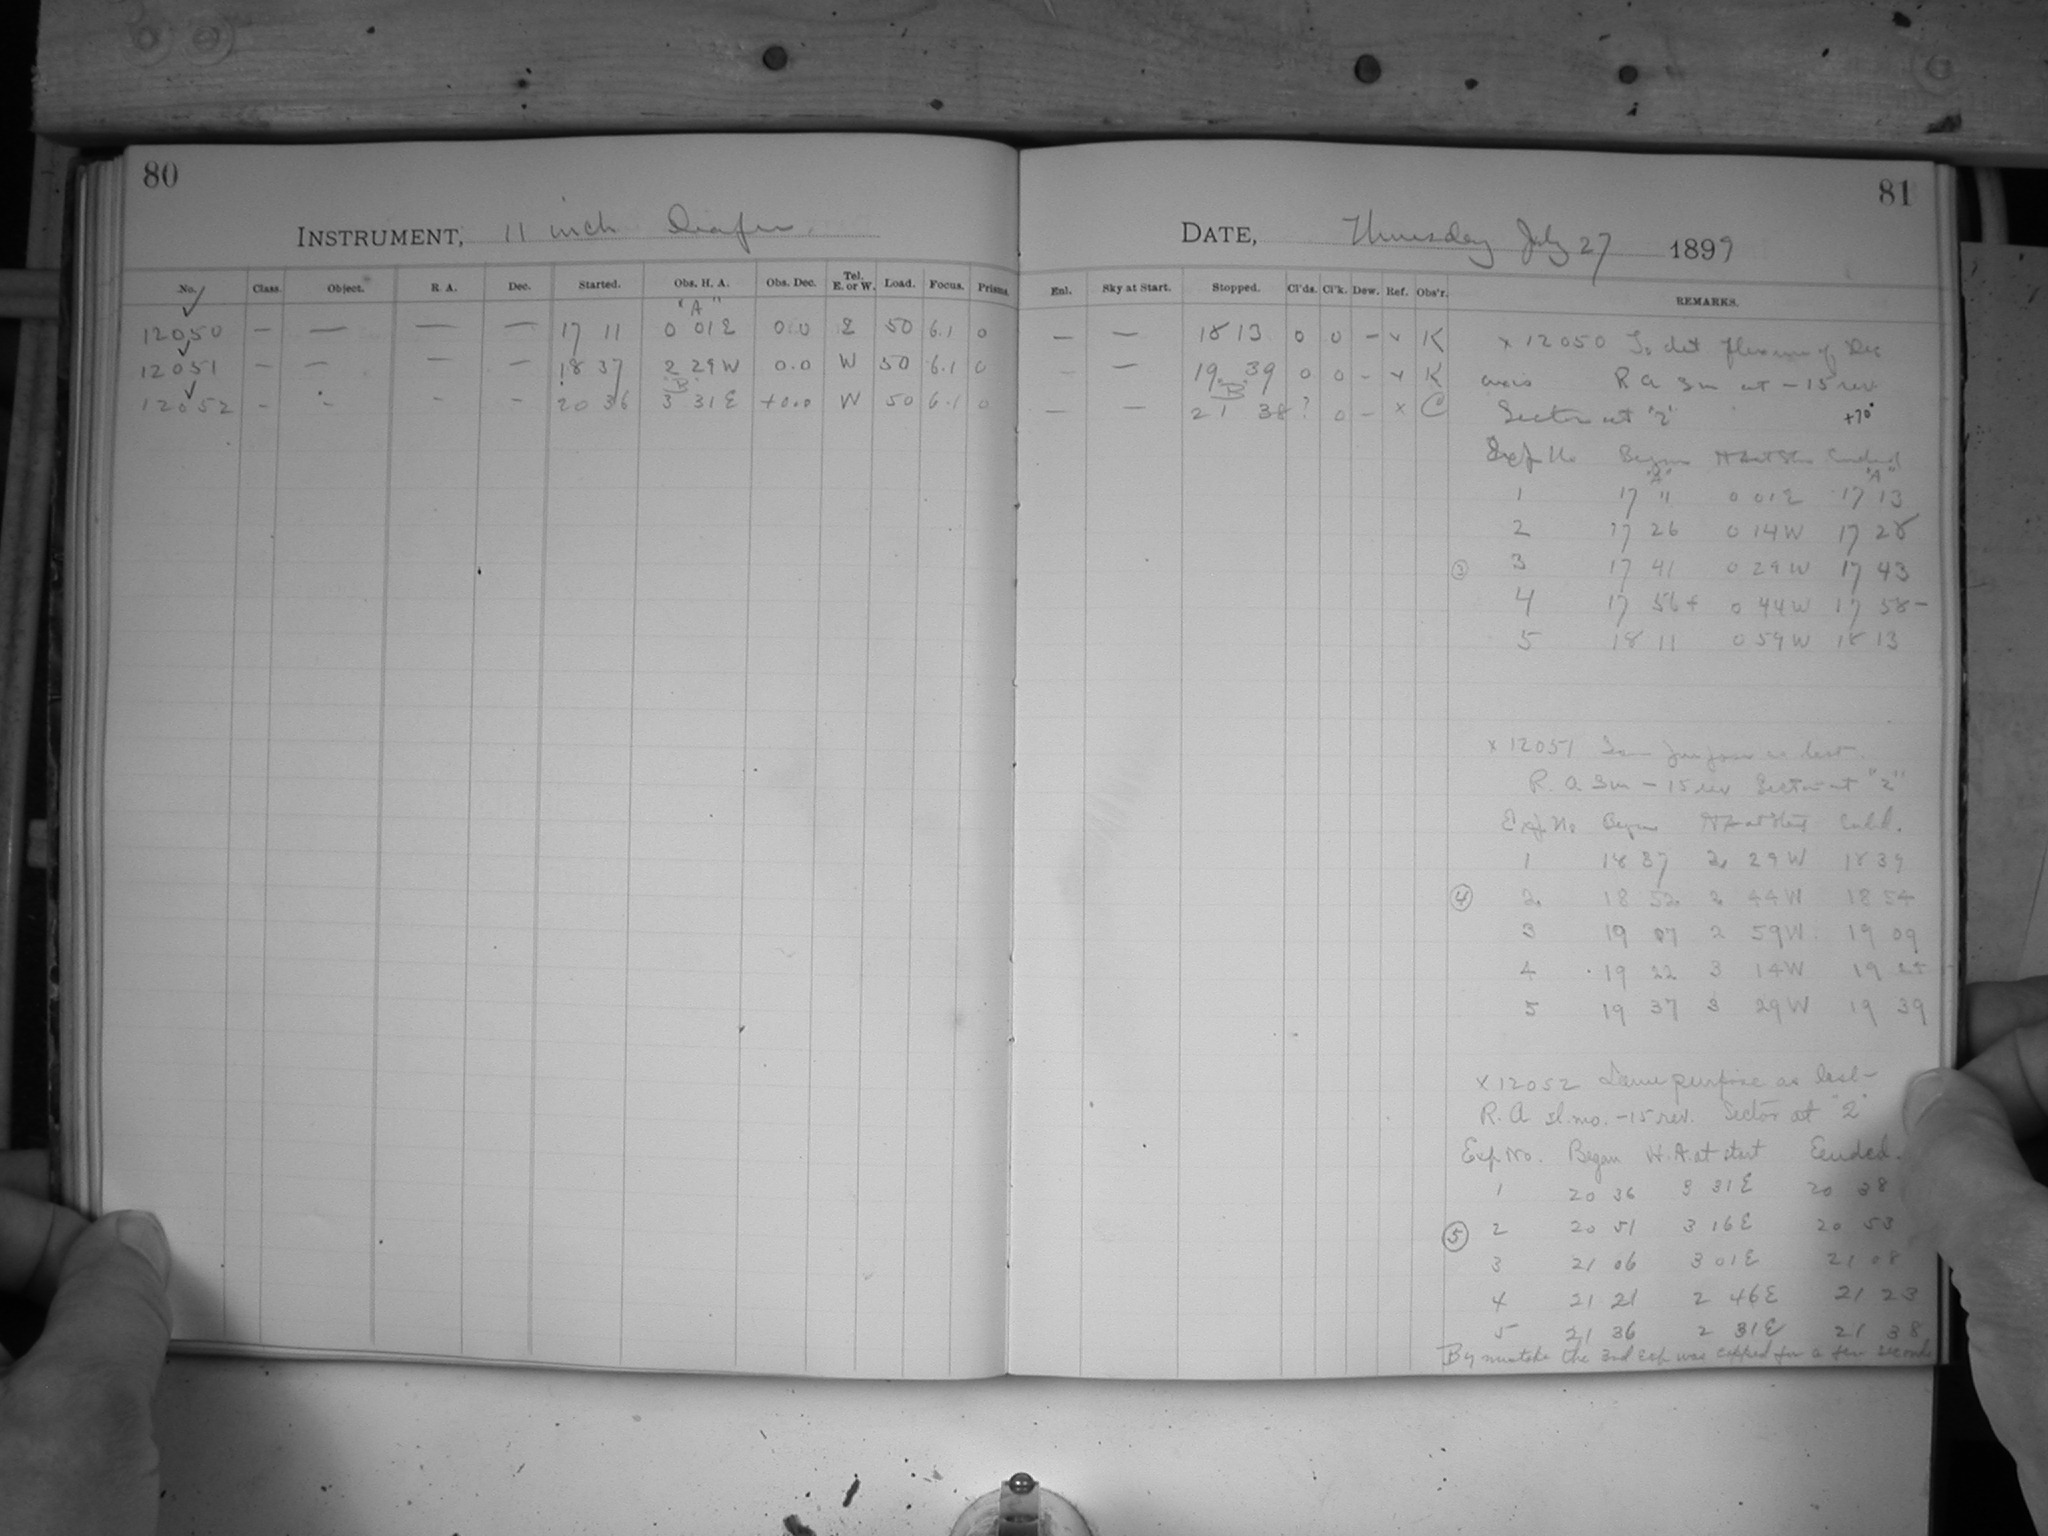 80
INSTRUMENT, 11 inch Draper.
No. Class. Object. R. A. Dec. Started. Obs. H. A. Obs. Dec. Tel. E. or W. Load. Focus. Prisms.
"A"
12050 — — — — 17 11 0 01E 0.0 E 50 6.1 0
12051 — — — — 18 37 2 29W 0.0 W 50 6.1 0
12052 - - - - 20 36 3 31E +0.0 W 50 6.1 0
81
DATE, Thursday July 27 1899
Enl. Sky at Start. Stopped. Cl'ds. Cl'k. Dew. Ref. Obs'r. REMARKS.
— — 18 13 0 0 - x K
- — 19 39 0 0 - x K
— — 21 38 ? 0 - x C
x 12050 To det flexure of Dec
axis R A Sm at -15 rev
Sector at "2" +70°
Exp No Began HA at Start Ended
"A" "A"
1 17 11 0 01E 17 13
2 17 26 0 14W 17 28
③ 3 17 41 0 29W 17 43
4 17 56+ 0 44W 17 58-
5 18 11 0 59W 18 13
x 12051 Same purpose as last.
R. A Sm - 15 rev Sector at "2"
Exp No Began HA at Start Ended.
1 18 37 2 29W 18 39
④ 2 18 52 2 44W 18 54
3 19 07 2 59W 19 09
4 19 22 3 14W 19
5 19 37 3 29W 19 39
x 12052 Same purpose as last-
R. A sl. mo. -15 rev. Sector at "2"
Exp No. Began H. A. at start Ended.
1 20 36 3 31E 20 38
⑤ 2 20 51 3 16E 20 53
3 21 06 3 01E 21 08
4 21 21 2 46E 21 23
5 21 36 2 31E 21 38
By mistake the 3rd exp was capped for a few seconds